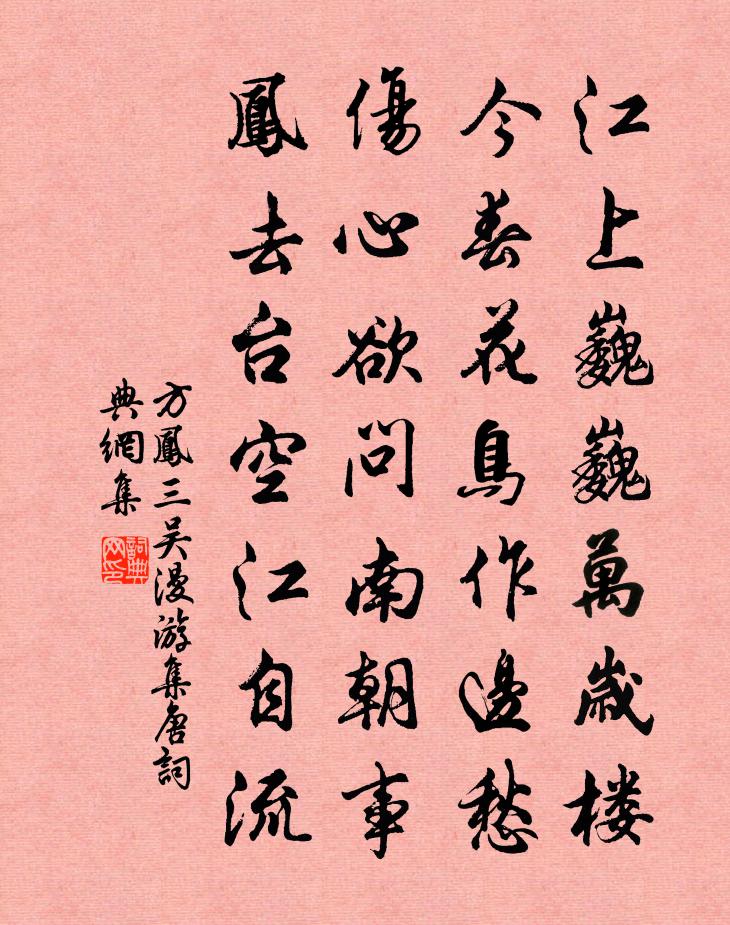 江上巍巍萬歲楼
今春花鳥作邊愁
傷心欲問南朝事
鳳去台空江自流
方鳳三吴漫游集唐詞
典網集
詞典網印